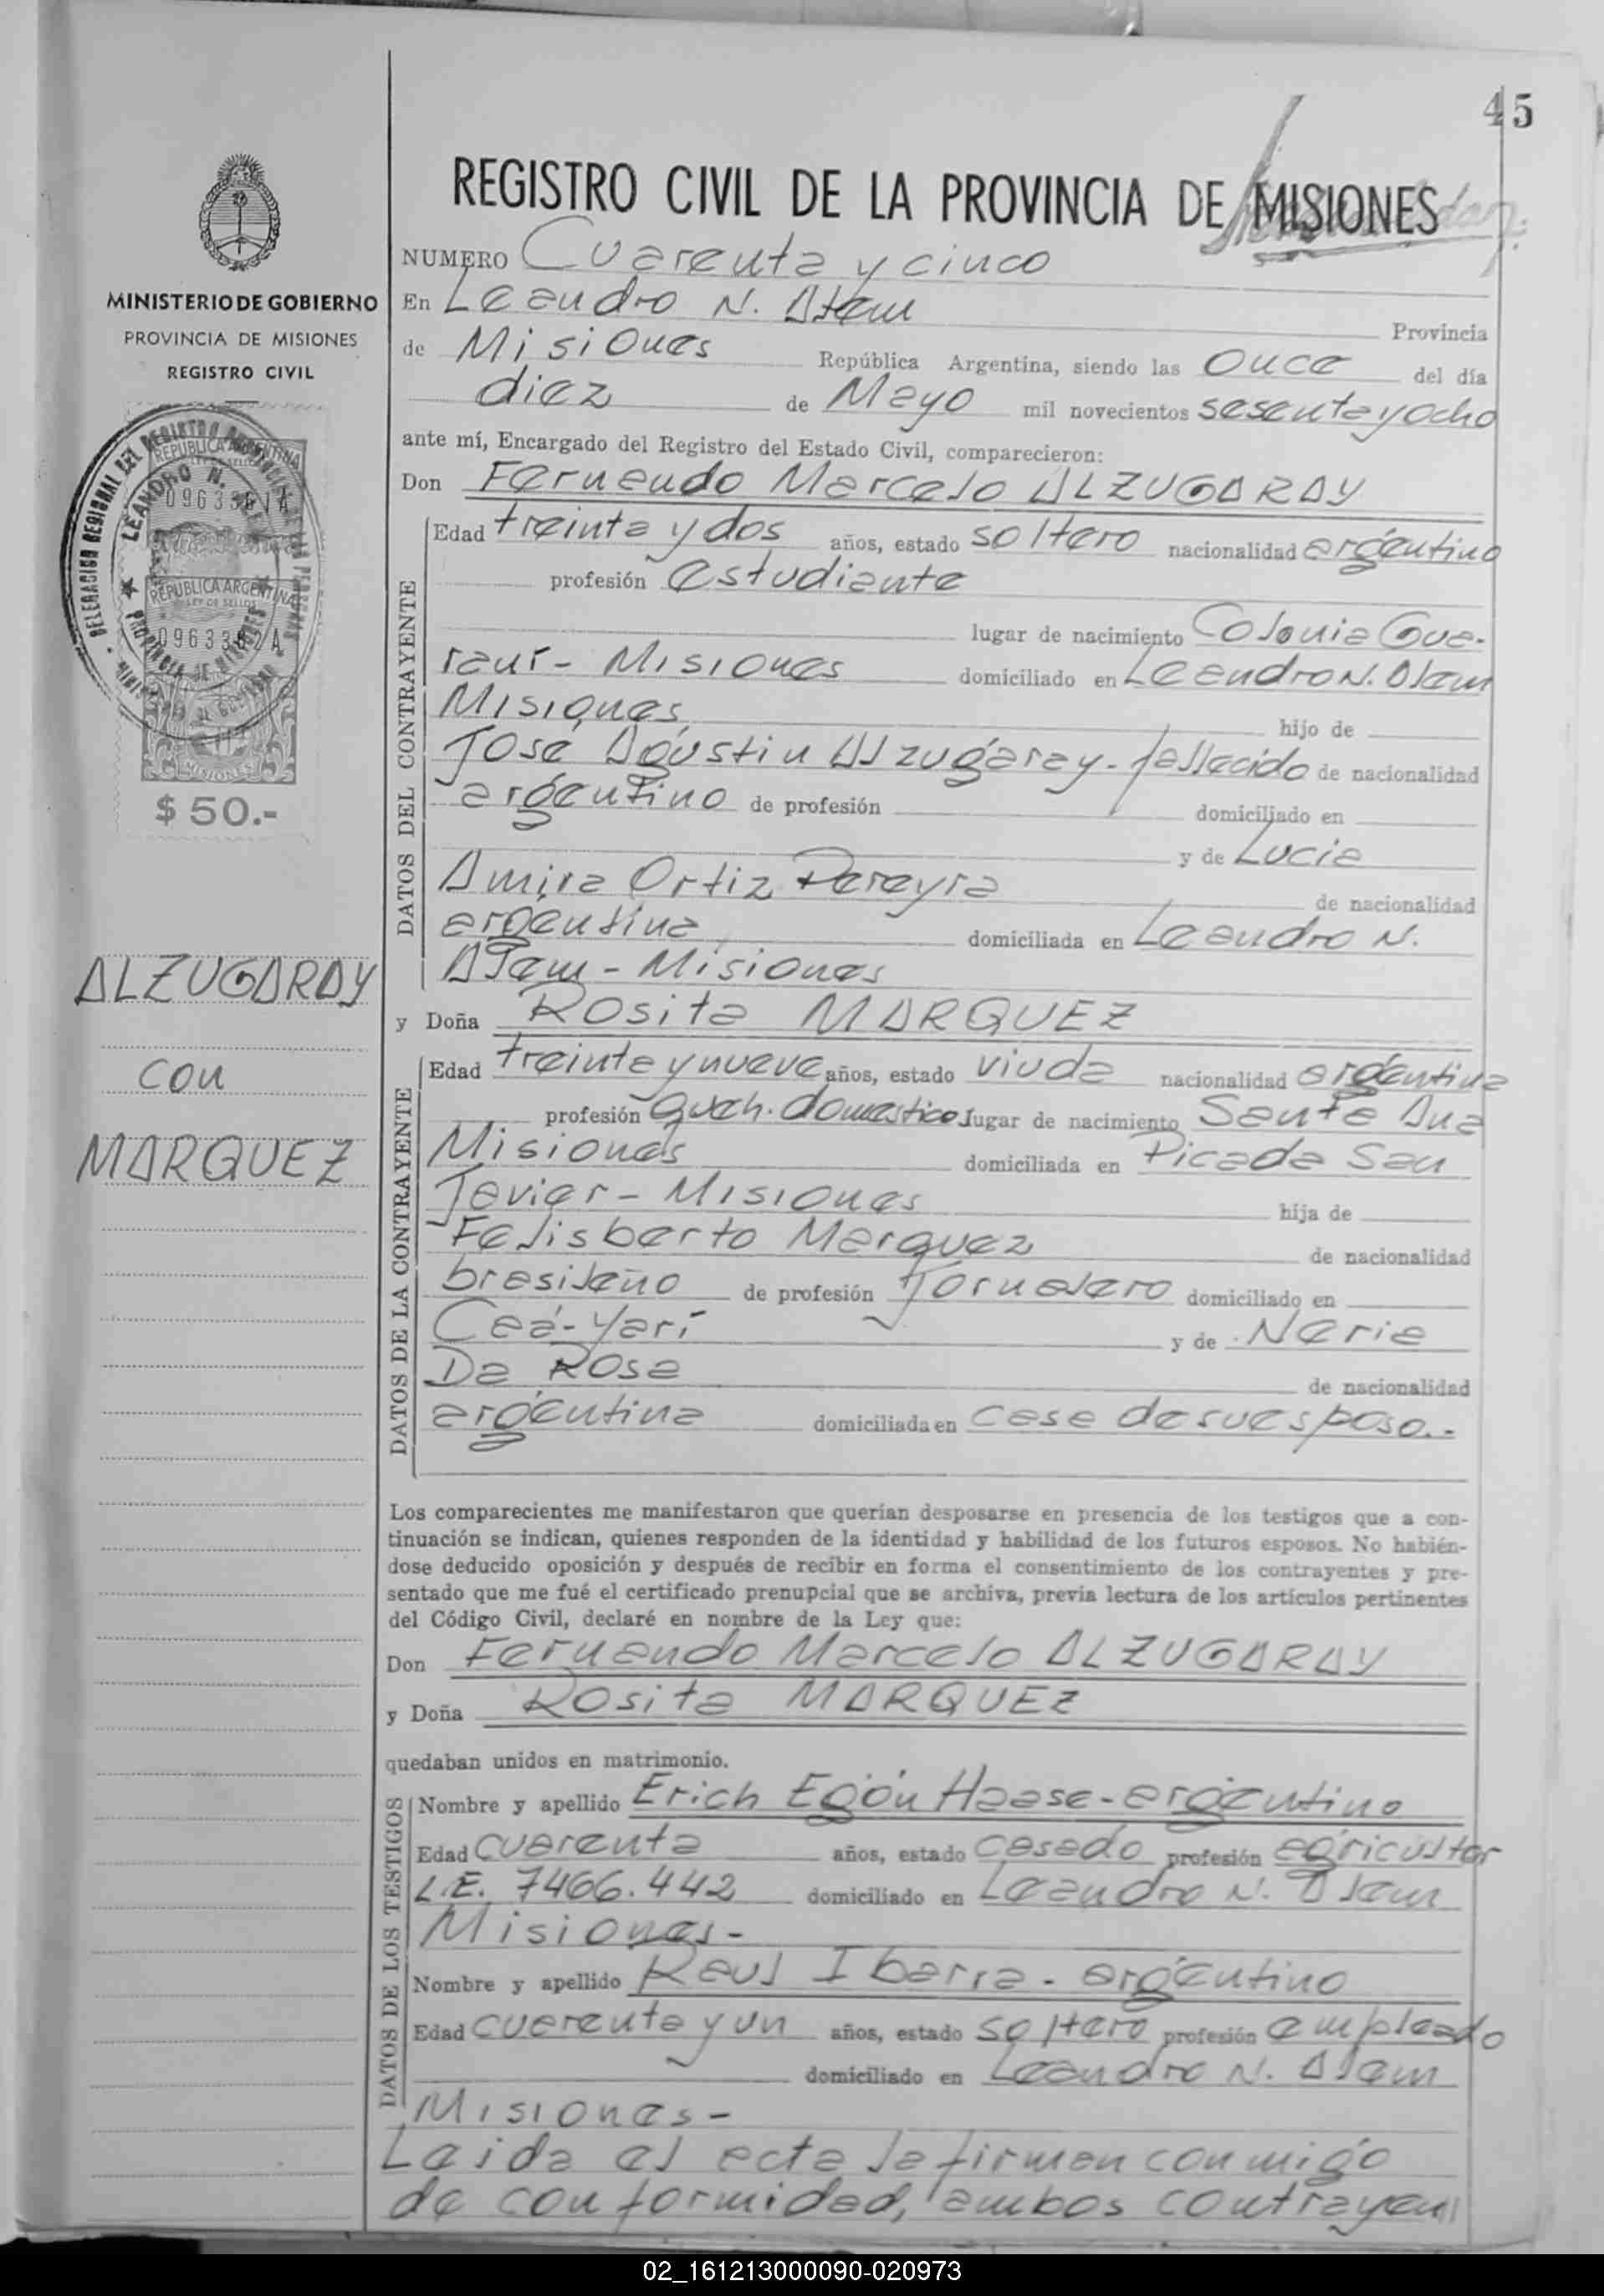 45
REGISTRO CIVIL DE LA PROVINCIA DE MISIONES
NUMERO Cuarenta y cinco
MINISTERIO DE GOBIERNO
PROVINCIA DE MISIONES
REGISTRO CIVIL
En Leandro N. Alem Provincia
de Misiones República Argentina, siendo las once del día
diez de Mayo mil novecientos sesenta y ocho
ante mí, Encargado del Registro del Estado Civil, comparecieron:
Don Fernando Marcelo ALZUGARAY
DATOS DEL CONTRAYENTE
Edad treinta y dos años, estado soltero nacionalidad argentino
profesión estudiante
lugar de nacimiento Colonia Gua-
raní - Misiones domiciliado en Leandro N. Alem
Misiones hijo de
José Agustin Alzugaray - fallecido de nacionalidad
argentino de profesión domiciliado en
y de Lucia
Amira Ortiz Pereyra de nacionalidad
argentina domiciliada en Leandro N.
Alem - Misiones
y Doña Rosita MARQUEZ
DATOS DE LA CONTRAYENTE
Edad treinta y nueve años, estado viuda nacionalidad argentina
profesión queh. domestico lugar de nacimiento Santa Ana
Misiones domiciliada en Picada San
Javier - Misiones hija de
Felisberto Marquez de nacionalidad
brasileño de profesión Jornalero domiciliado en
Caá-Yarí y de Neria
Da Rosa de nacionalidad
argentina domiciliada en casa de su esposo.-
Los comparecientes me manifestaron que querían desposarse en presencia de los testigos que a con-
tinuación se indican, quienes responden de la identidad y habilidad de los futuros esposos. No habién-
dose deducido oposición y después de recibir en forma el consentimiento de los contrayentes y pre-
sentado que me fué el certificado prenupcial que se archiva, previa lectura de los artículos pertinentes
del Código Civil, declaré en nombre de la Ley que:
Don Fernando Marcelo ALZUGARAY
y Doña Rosita MARQUEZ
quedaban unidos en matrimonio.
DATOS DE LOS TESTIGOS
Nombre y apellido Erich Egón Haase - argentino
Edad cuarenta años, estado casado profesión agricultor
L.E. 7466.442 domiciliado en Leandro N. Alem
Misiones -
Nombre y apellido Raul Ibarra - argentino
Edad cuarenta y un años, estado soltero profesión empleado
domiciliado en Leandro N. Alem
Misiones -
Leida el acta la firman conmigo
de conformidad, ambos contrayen
DELEGACION REGIONAL DEL REGISTRO
LEANDRO N.
PROVINCIA DE MISIONES
REPUBLICA ARGENTINA
LEY DE SELLOS
REPUBLICA ARGENTINA
LEY DE SELLOS
MISIONES
$ 50.-
ALZUGARAY
con
MARQUEZ
02_161213000090-020973